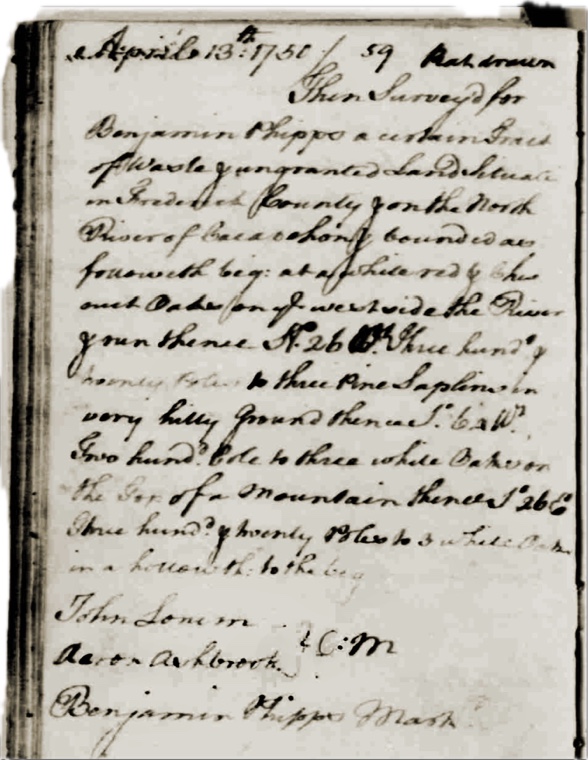 April 13th: 1750 / 59 Plat drawn
Then Survey'd for
Benjamin Phipps a certain Tract
of Waste & ungranted Land Situate
in Frederick County & on the North
River of Cacacehon & bounded as
followeth beg: at a white red & Ches
nut Oakes on ye west side the River
& run thence No. 26 Wt. Three hundd. &
twenty Poles to three Pine Saplins in
very hilly Ground thence So. 64 Wt.
Two hundd. Pole to three white Oakes on
the Top of a Mountain thence So. 26 Et
Three hundd. & twenty Poles to 3 white Oakes
in a hollow th: to the beg
John Lonem
Aaron Ashbrook } C:M
Benjamin Phipps Mark